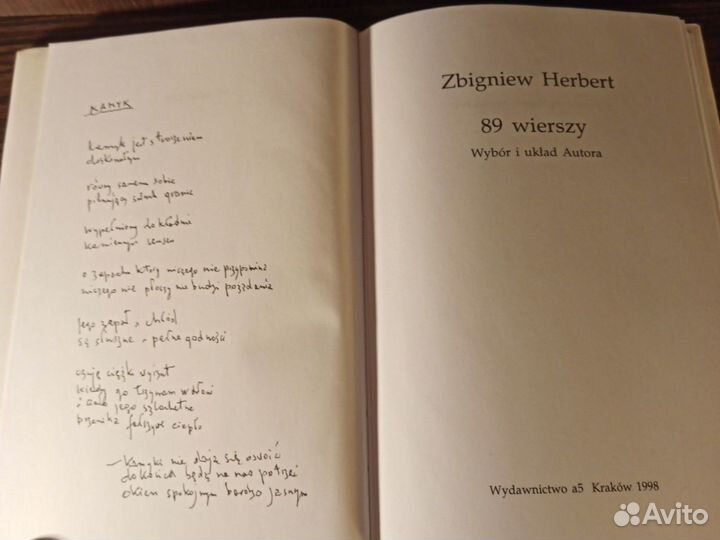 KAMYK
kamyk jest stworzeniem
doskonałym
równy samemu sobie
pilnujący swych granic
wypełniony dokładnie
kamiennym sensem
o zapachu który niczego nie przypomina
niczego nie płoszy nie budzi pożądania
jego zapał i chłód
są słuszne i pełne godności
czuję ciężki wyrzut
kiedy go trzymam w dłoni
i ciało jego szlachetne
przenika fałszywe ciepło
– Kamyki nie dają się oswoić
do końca będą na nas patrzeć
okiem spokojnym bardzo jasnym
Zbigniew Herbert
89 wierszy
Wybór i układ Autora
Wydawnictwo a5 Kraków 1998
Avito